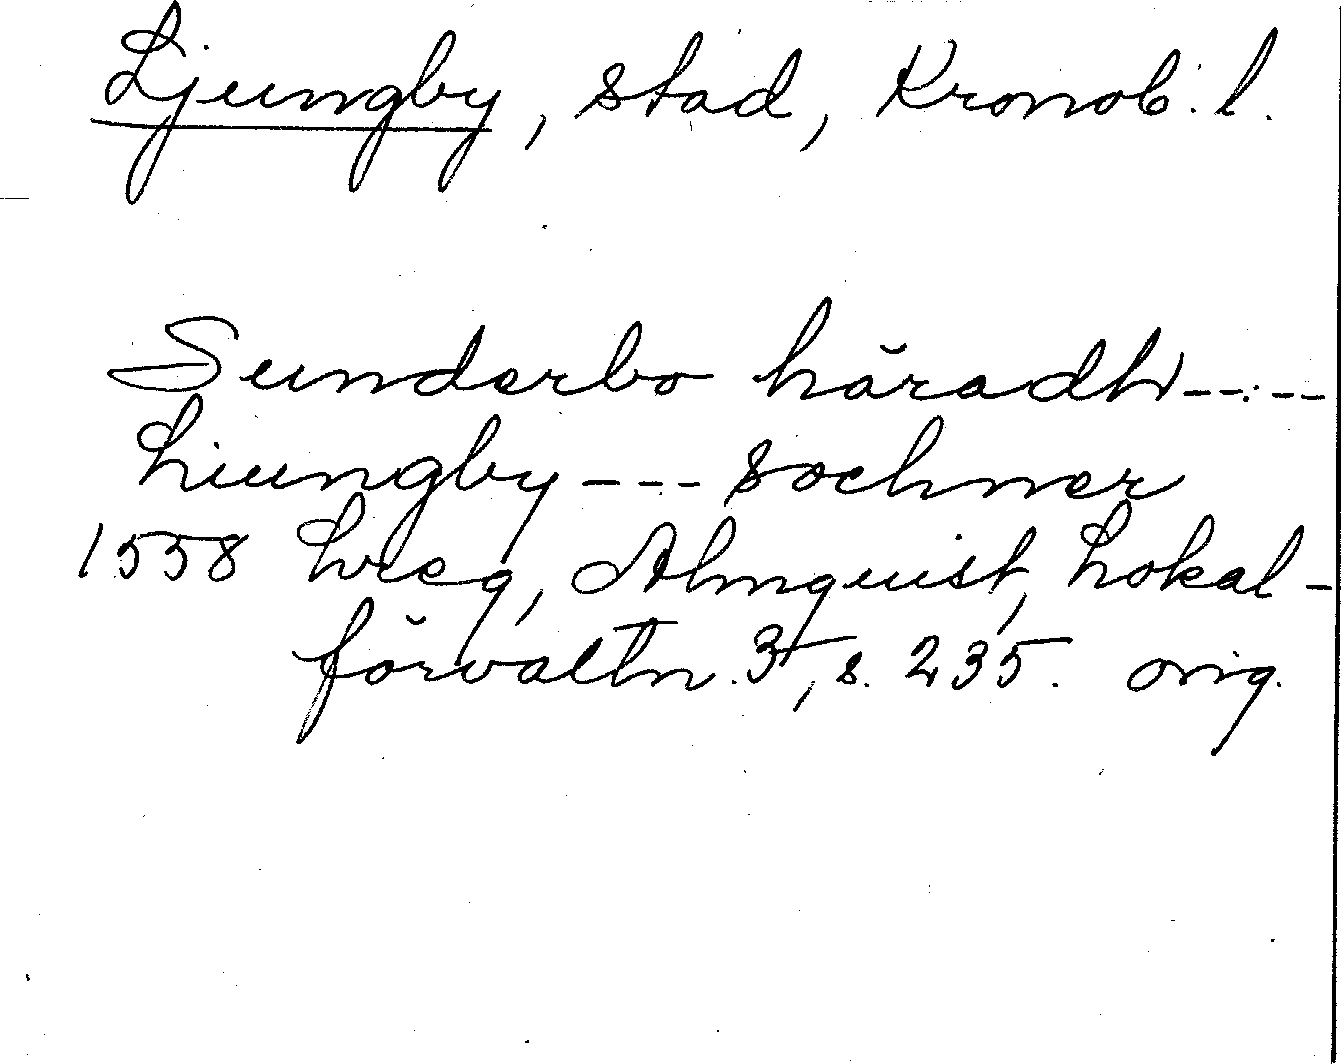 Ljungby, stad, Kronob. l.
Sunderbo häradh -----
Liungby --- sochner
1558 Lreg, Almquist, Lokal-
förvaltn. 3, s. 235. orig.